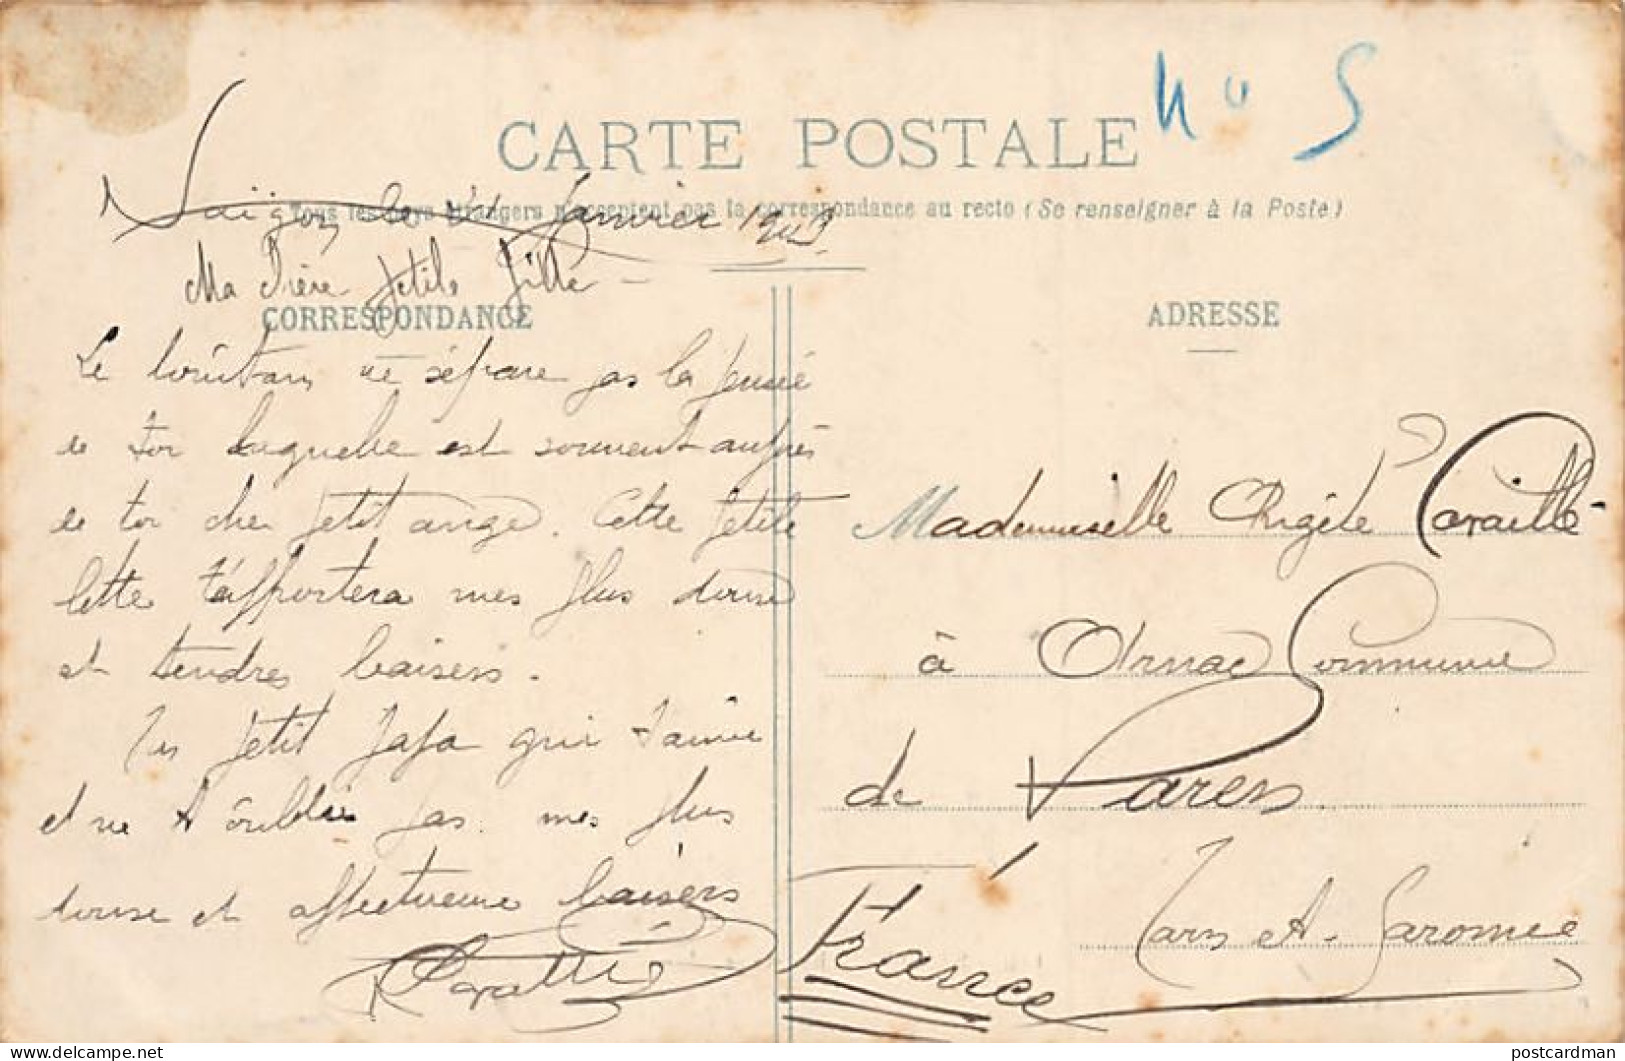 N° 5
CARTE POSTALE
Tous les pays étrangers n'acceptent pas la correspondance au recto (Se renseigner à la Poste)
Saïgon, le Janvier
Ma Petite Fille -
CORRESPONDANCE
ADRESSE
Le ne sépare pas la pensé
de toi laquelle est souvent auprès
de toi cher petit ange. Cette petite
lettre t'apportera mes plus douce
et tendres baisers.
Ton petit papa qui t'aime
et ne t'oublie pas. mes plus
douse et affectueuse baisers
Mademoiselle
à Ornac Commune
de Varen
Tarn et - Garonne
France
postcardman